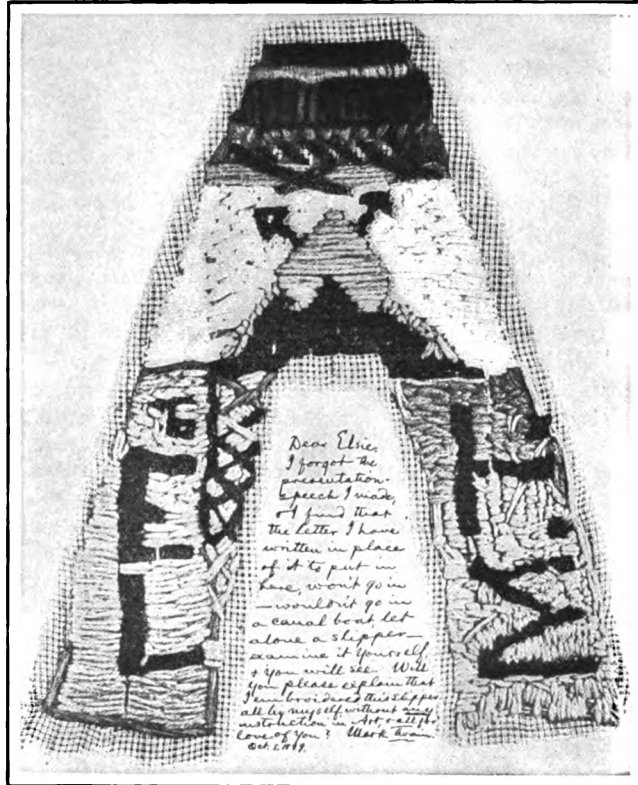 Dear Elsie,
I forgot the
presentation-
speech I made,
& I find that
the letter I have
written in place
of it to put in
here, won't go in
— wouldn't go in
a canal boat, let
alone a slipper—
examine it yourself,
& you will see. Will
you please explain that
I embroidered this slipper
all by myself without any
instruction in Art, & all for
love of you? Mark Twain.
Oct. 1889.
M.T.